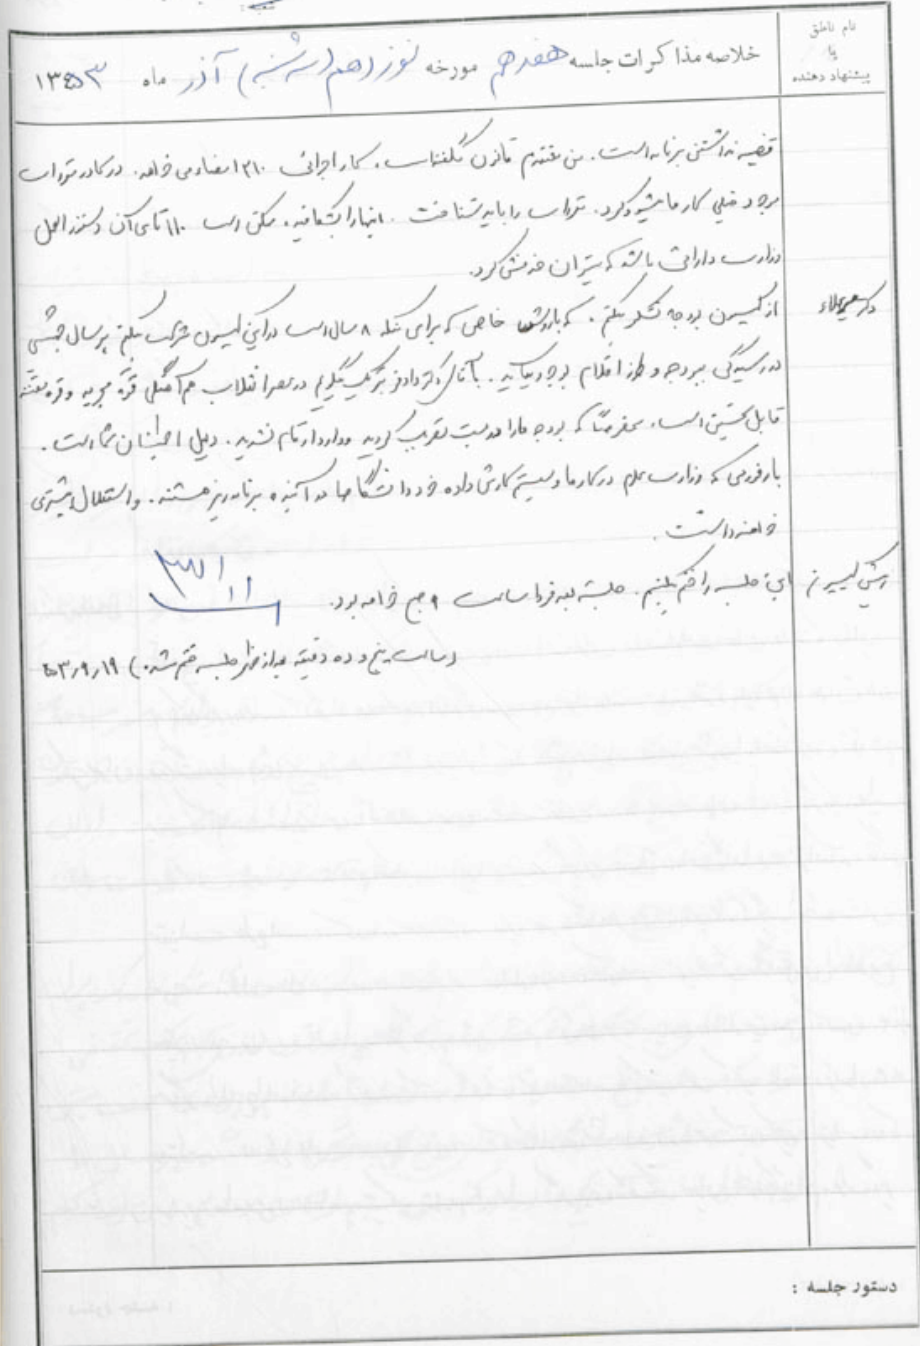 نام ناطق
یا
پیشنهاد دهنده
خلاصه مذاکرات جلسه هفدهم مورخه نوزدهم (سه شنبه) آذر ماه ۱۳۵۳
قضیه نداشتن برنامه است. من معتقدم قانون کلفت است. کار اجرائی ۱۳۱۰ امضاء می خواهد. در کادر مقررات
موجود خیلی کارها میشود کرد. مقررات را باید شناخت. اینها را بشکافید. ممکن است ۱۱۰ تای آن دستورالعمل
وزارت دارائی باشد که میتوان حذفش کرد.
دکتر
از کمیسیون بودجه تشکر میکنم. که با روش خاصی که برای اینکه ۸ سال است در این کمیسیون شرکت میکنم هر سال
در رسیدگی ببودجه و طرز اقلام بوجود میآید. بآقای دکتر دادفر تبریک میگویم در عصر انقلاب هم آهنگی قوه مجریه و قوه مقننه
قابل تحسین است. که بودجه ما را تصویب کردید و وارد ارقام نشدید. دلیل اطمینان شما است.
با رفرمی که وزارت علوم در کار ما و سیستم کارش داده خود دانشگاهها در آینده برنامه ریز هستند. و استقلال بیشتری
خواهند داشت.
رئیس کمیسیون
این جلسه را ختم میکنیم. جلسه بعد فردا ساعت ۹ صبح خواهد بود.
(ساعت پنج و ده دقیقه بعد از ظهر جلسه ختم شد.) ۵۳/۹/۱۹
دستور جلسه :